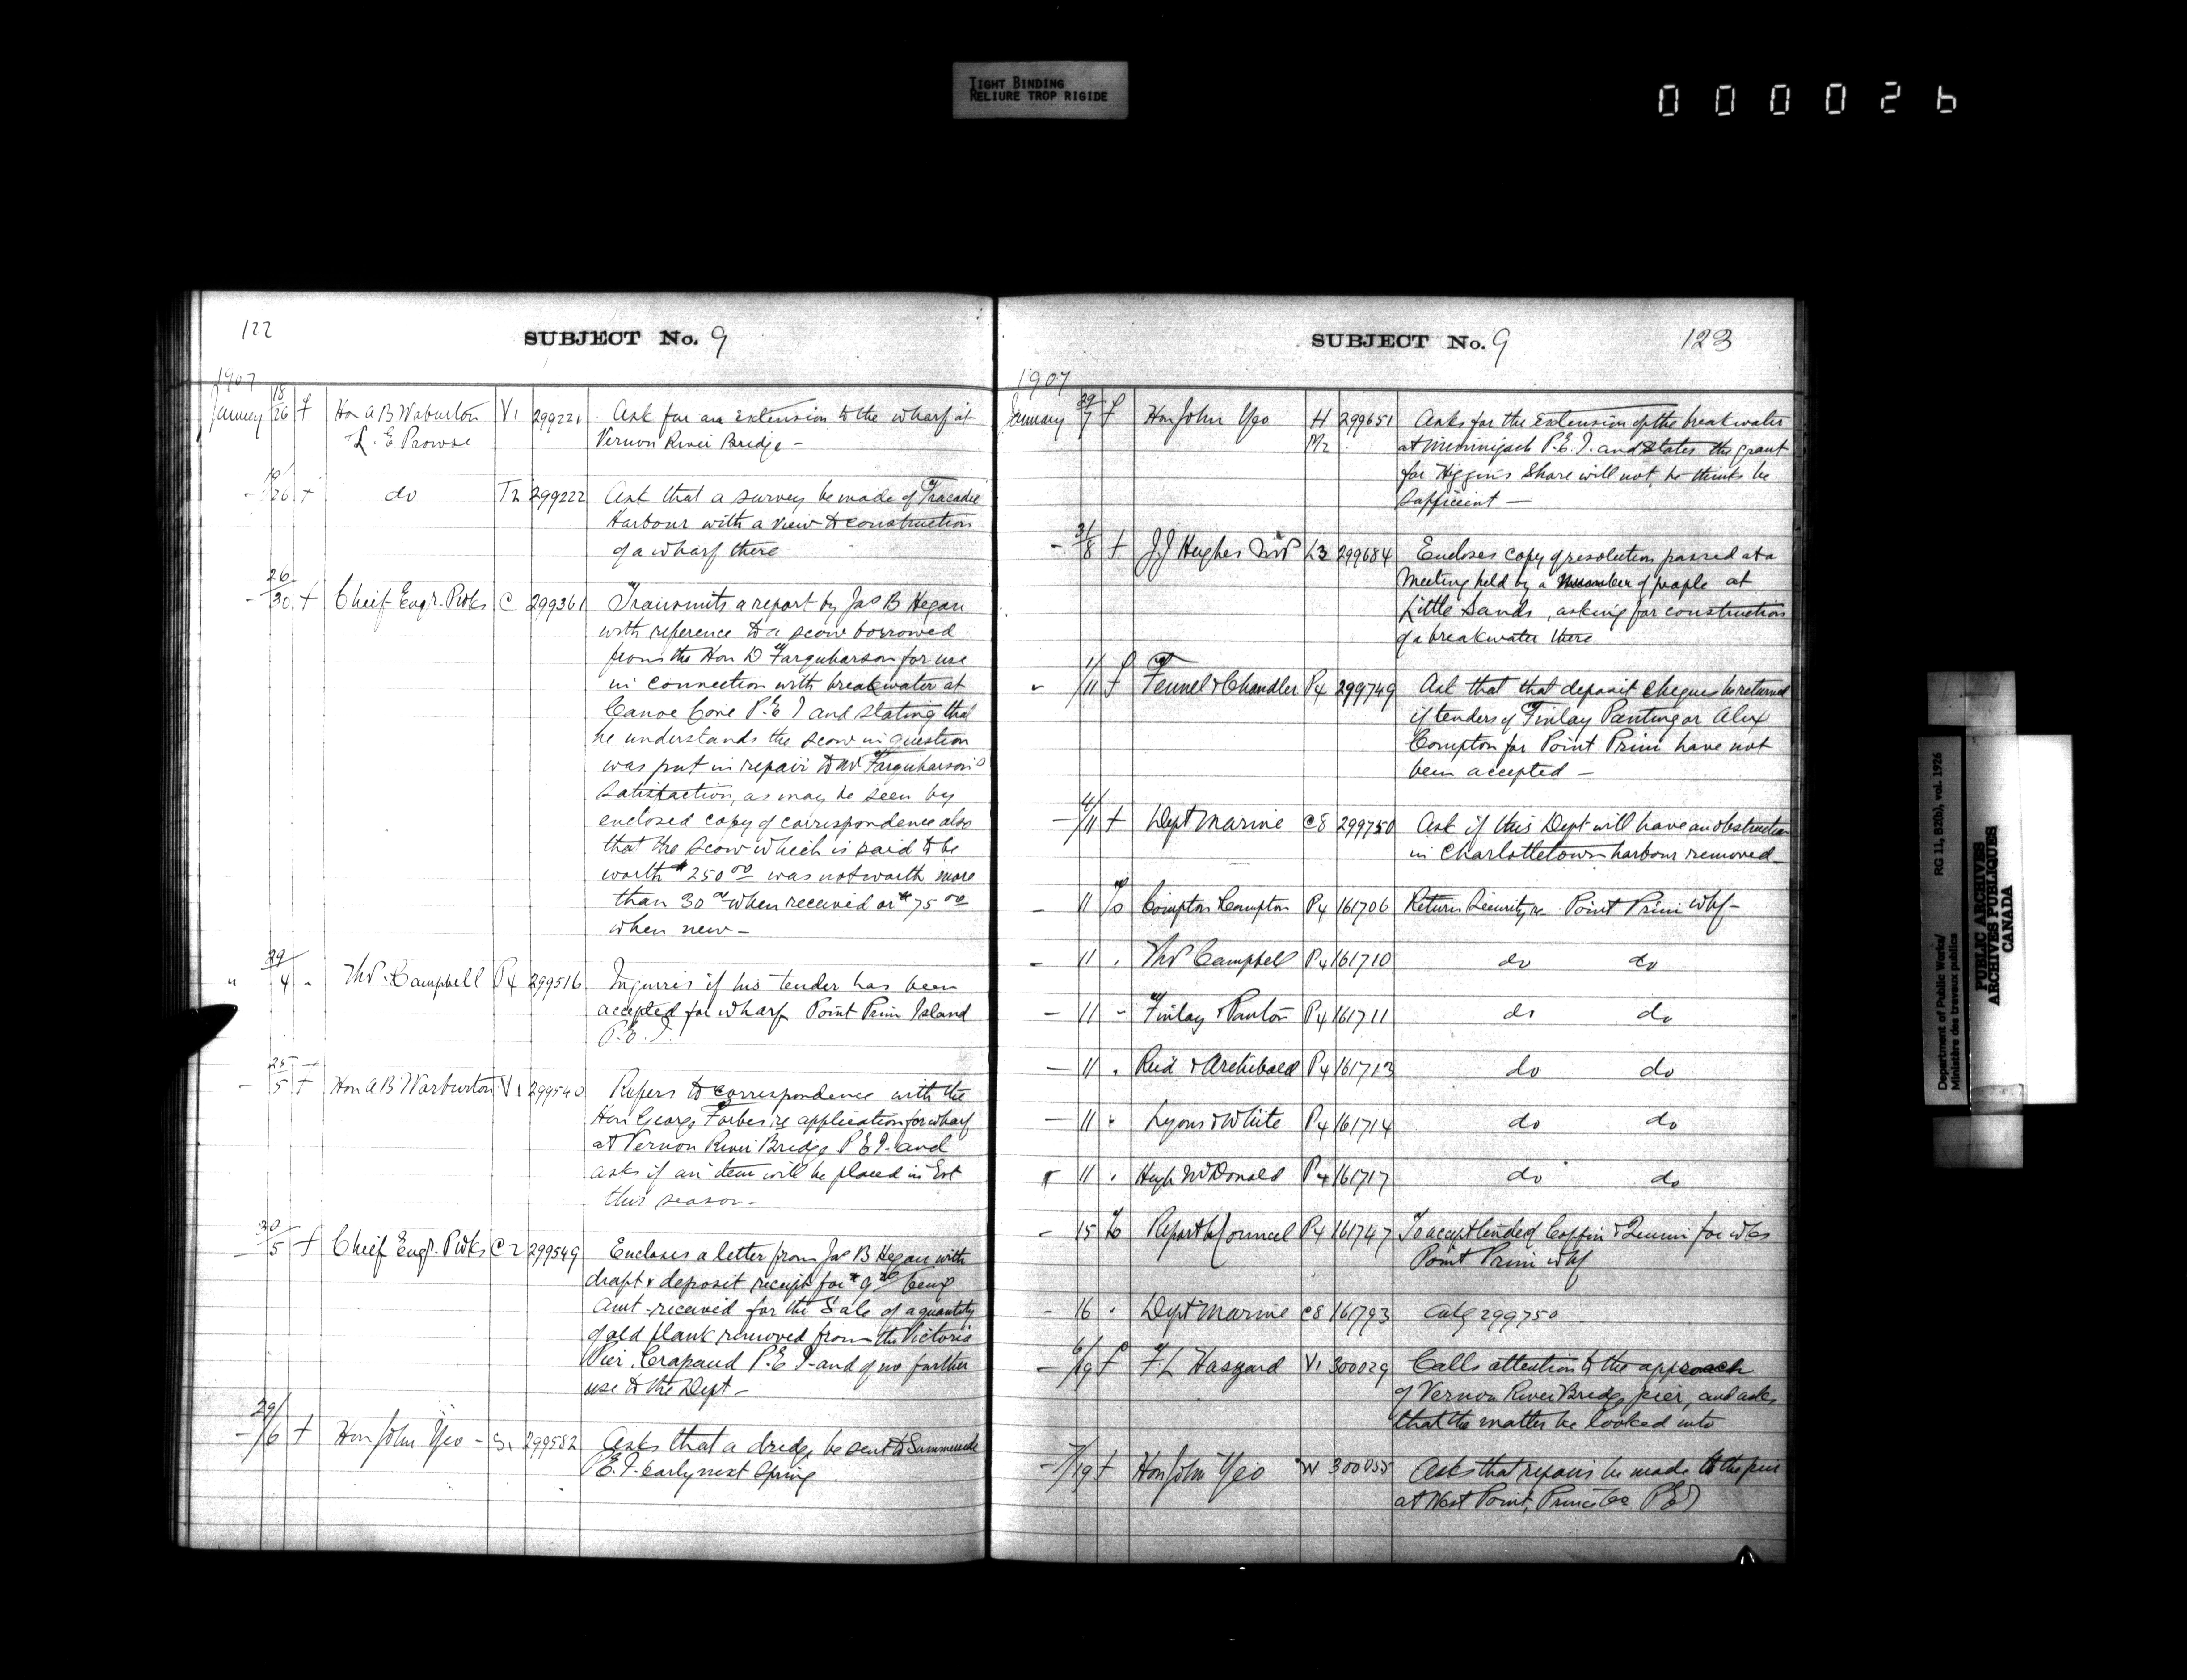 TIGHT BINDING
RELIURE TROP RIGIDE
000026
122
SUBJECT No. 9
1907
January 18/26 f Hon A B Waburton V1 299221 Ask for an extension to the wharf at
+ L. E Prowse Vernon River Bridge -
- 19/26 + do T2 299222 Ask that a survey be made of Tracadie
Harbour with a view to construction
of a wharf there
- 26/30 + Chief Engr. P Wks C 299361 Transmits a report by Jas B Hegan
with reference to a scow borrowed
from the Hon D Farquharson for use
in connection with breakwater at
Canoe Cove P.E I and stating that
he understands the scow in question
was put in repair to Mr Farquharson's
satisfaction, as may be seen by
enclosed copy of correspondence also
that the scow which is said to be
worth $250 00 was not worth more
than 30 00 when received or $75 00
when new -
" 29/4 " Thos Campbell P4 299516 Inquires if his tender has been
accepted for wharf Point Prim Island
P.E.I.
- 25/5 + Hon A B Warburton V1 299540 Refers to correspondence with the
Hon George Forbes re application for wharf
at Vernon River Bridge P E I and
asks if an item will be placed in Est
this season -
- 30/5 f Chief Engr. P Wks C2 299549 Encloses a letter from Jas B Hegan with
draft & deposit receipt for being
Amt received for the Sale of a quantity
of old plank removed from the Victoria
Pier, Crapaud P.E I and of no further
use to the Dept -
- 29/6 + Hon John Yeo - S1 299582 Asks that a dredge be sent to Summerside
P E. I. early next Spring
SUBJECT No. 9
123
1907
January 29/7 f Hon John Yeo H 299651 Asks for the extension of the breakwater
M2 at Miminigash P.E.I. and states the grant
for Higgins Share will not, he thinks be
sufficient -
- 31/8 + J J Hughes MP L3 299684 Encloses copy of resolution passed at a
Meeting held by a number of people at
Little Sands, asking for construction
of a breakwater there
1/11 f Fennel & Chandler P4 299749 Ask that that deposit cheques be returned
if tenders of Finlay Panting or Alex
Compton for Point Prim have not
been accepted -
- 4/11 + Dept Marine C8 299750 Ask if this Dept will have an obstruction
in Charlottetown harbour removed -
- 11 To Compton & Compton P4 161706 Return Security re Point Prim whf -
- 11 " Thos Campbell P4 161710 do do
- 11 " Finlay & Panton P4 161711 do do
- 11 " Reid & Archibald P4 161713 do do
- 11 " Lyons & White P4 161714 do do
11 " Hugh McDonald P4 161717 do do
- 15 To Report to Council P4 161747 To accept tender of Coffin & for wks
Point Prim whf
- 16 " Dept Marine C8 161793 299750
- 6/19 f F. L Haszard V1 300029 Calls attention to the approach
of Vernon River Bridge pier, and asks
that the matter be looked into
- 7/19 + Hon John Yeo W 300055 Asks that repairs be made to the pier
at West Point, Prince Co P E I
Department of Public Works/ RG 11, B2(b), vol. 1926
Ministère des travaux publics
PUBLIC ARCHIVES
ARCHIVES PUBLIQUES
CANADA